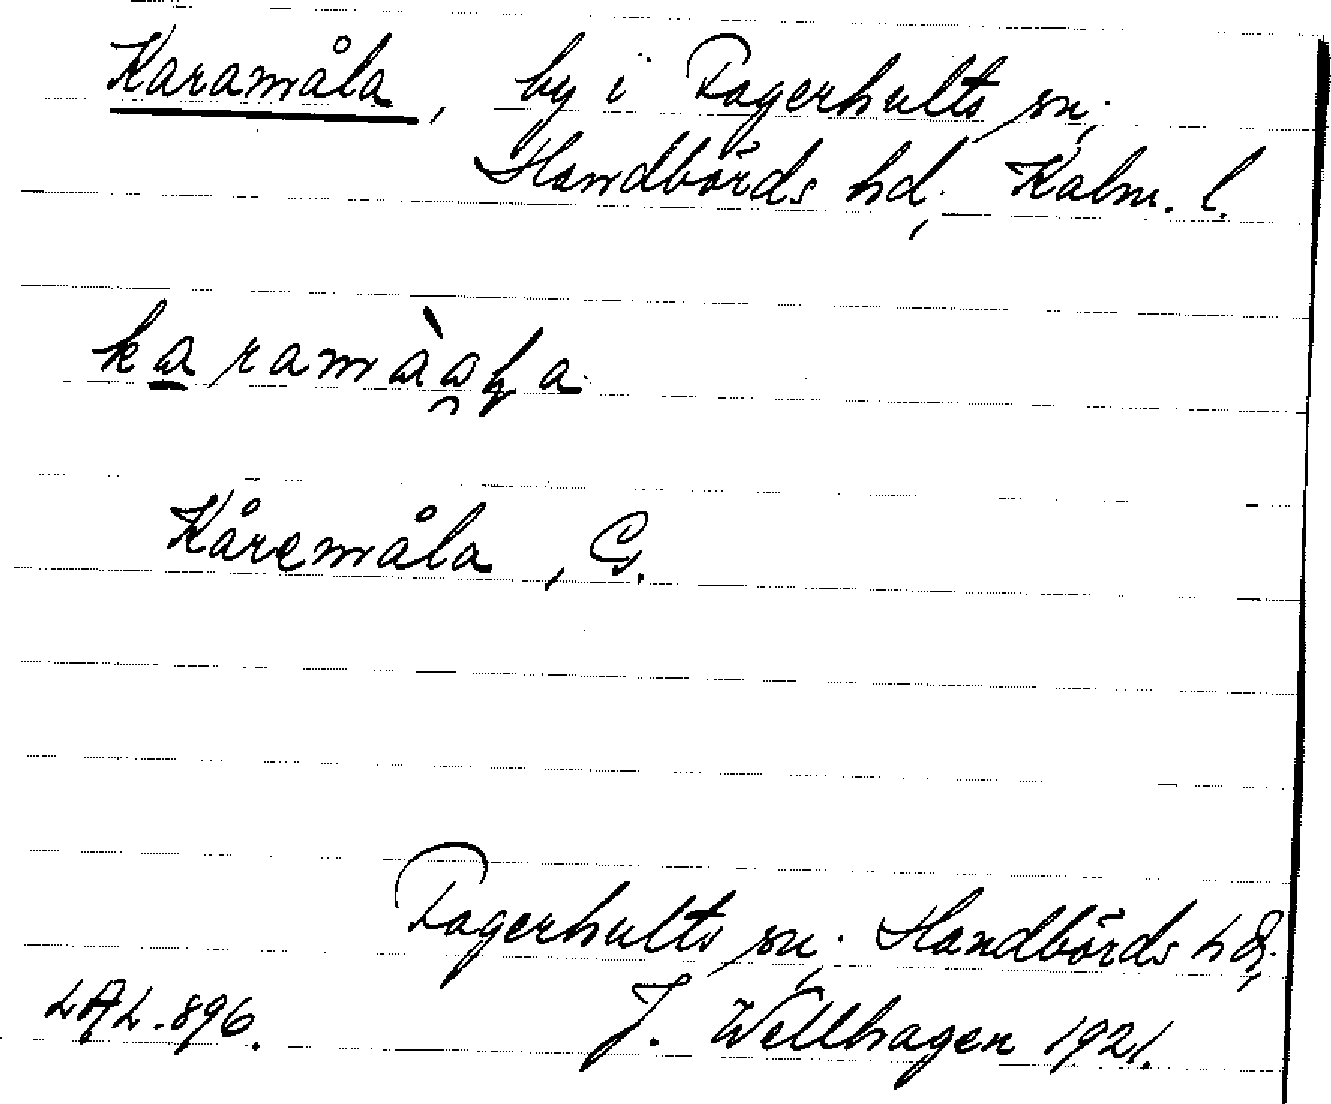 Karamåla, by i Fagerhults sn,
Handbörds hd, Kalm. l.
karamàɷɽa
Kåremåla, G.
Fagerhults sn. Handbörds hd,
LAL. 896. J. Wellhagen 1921.